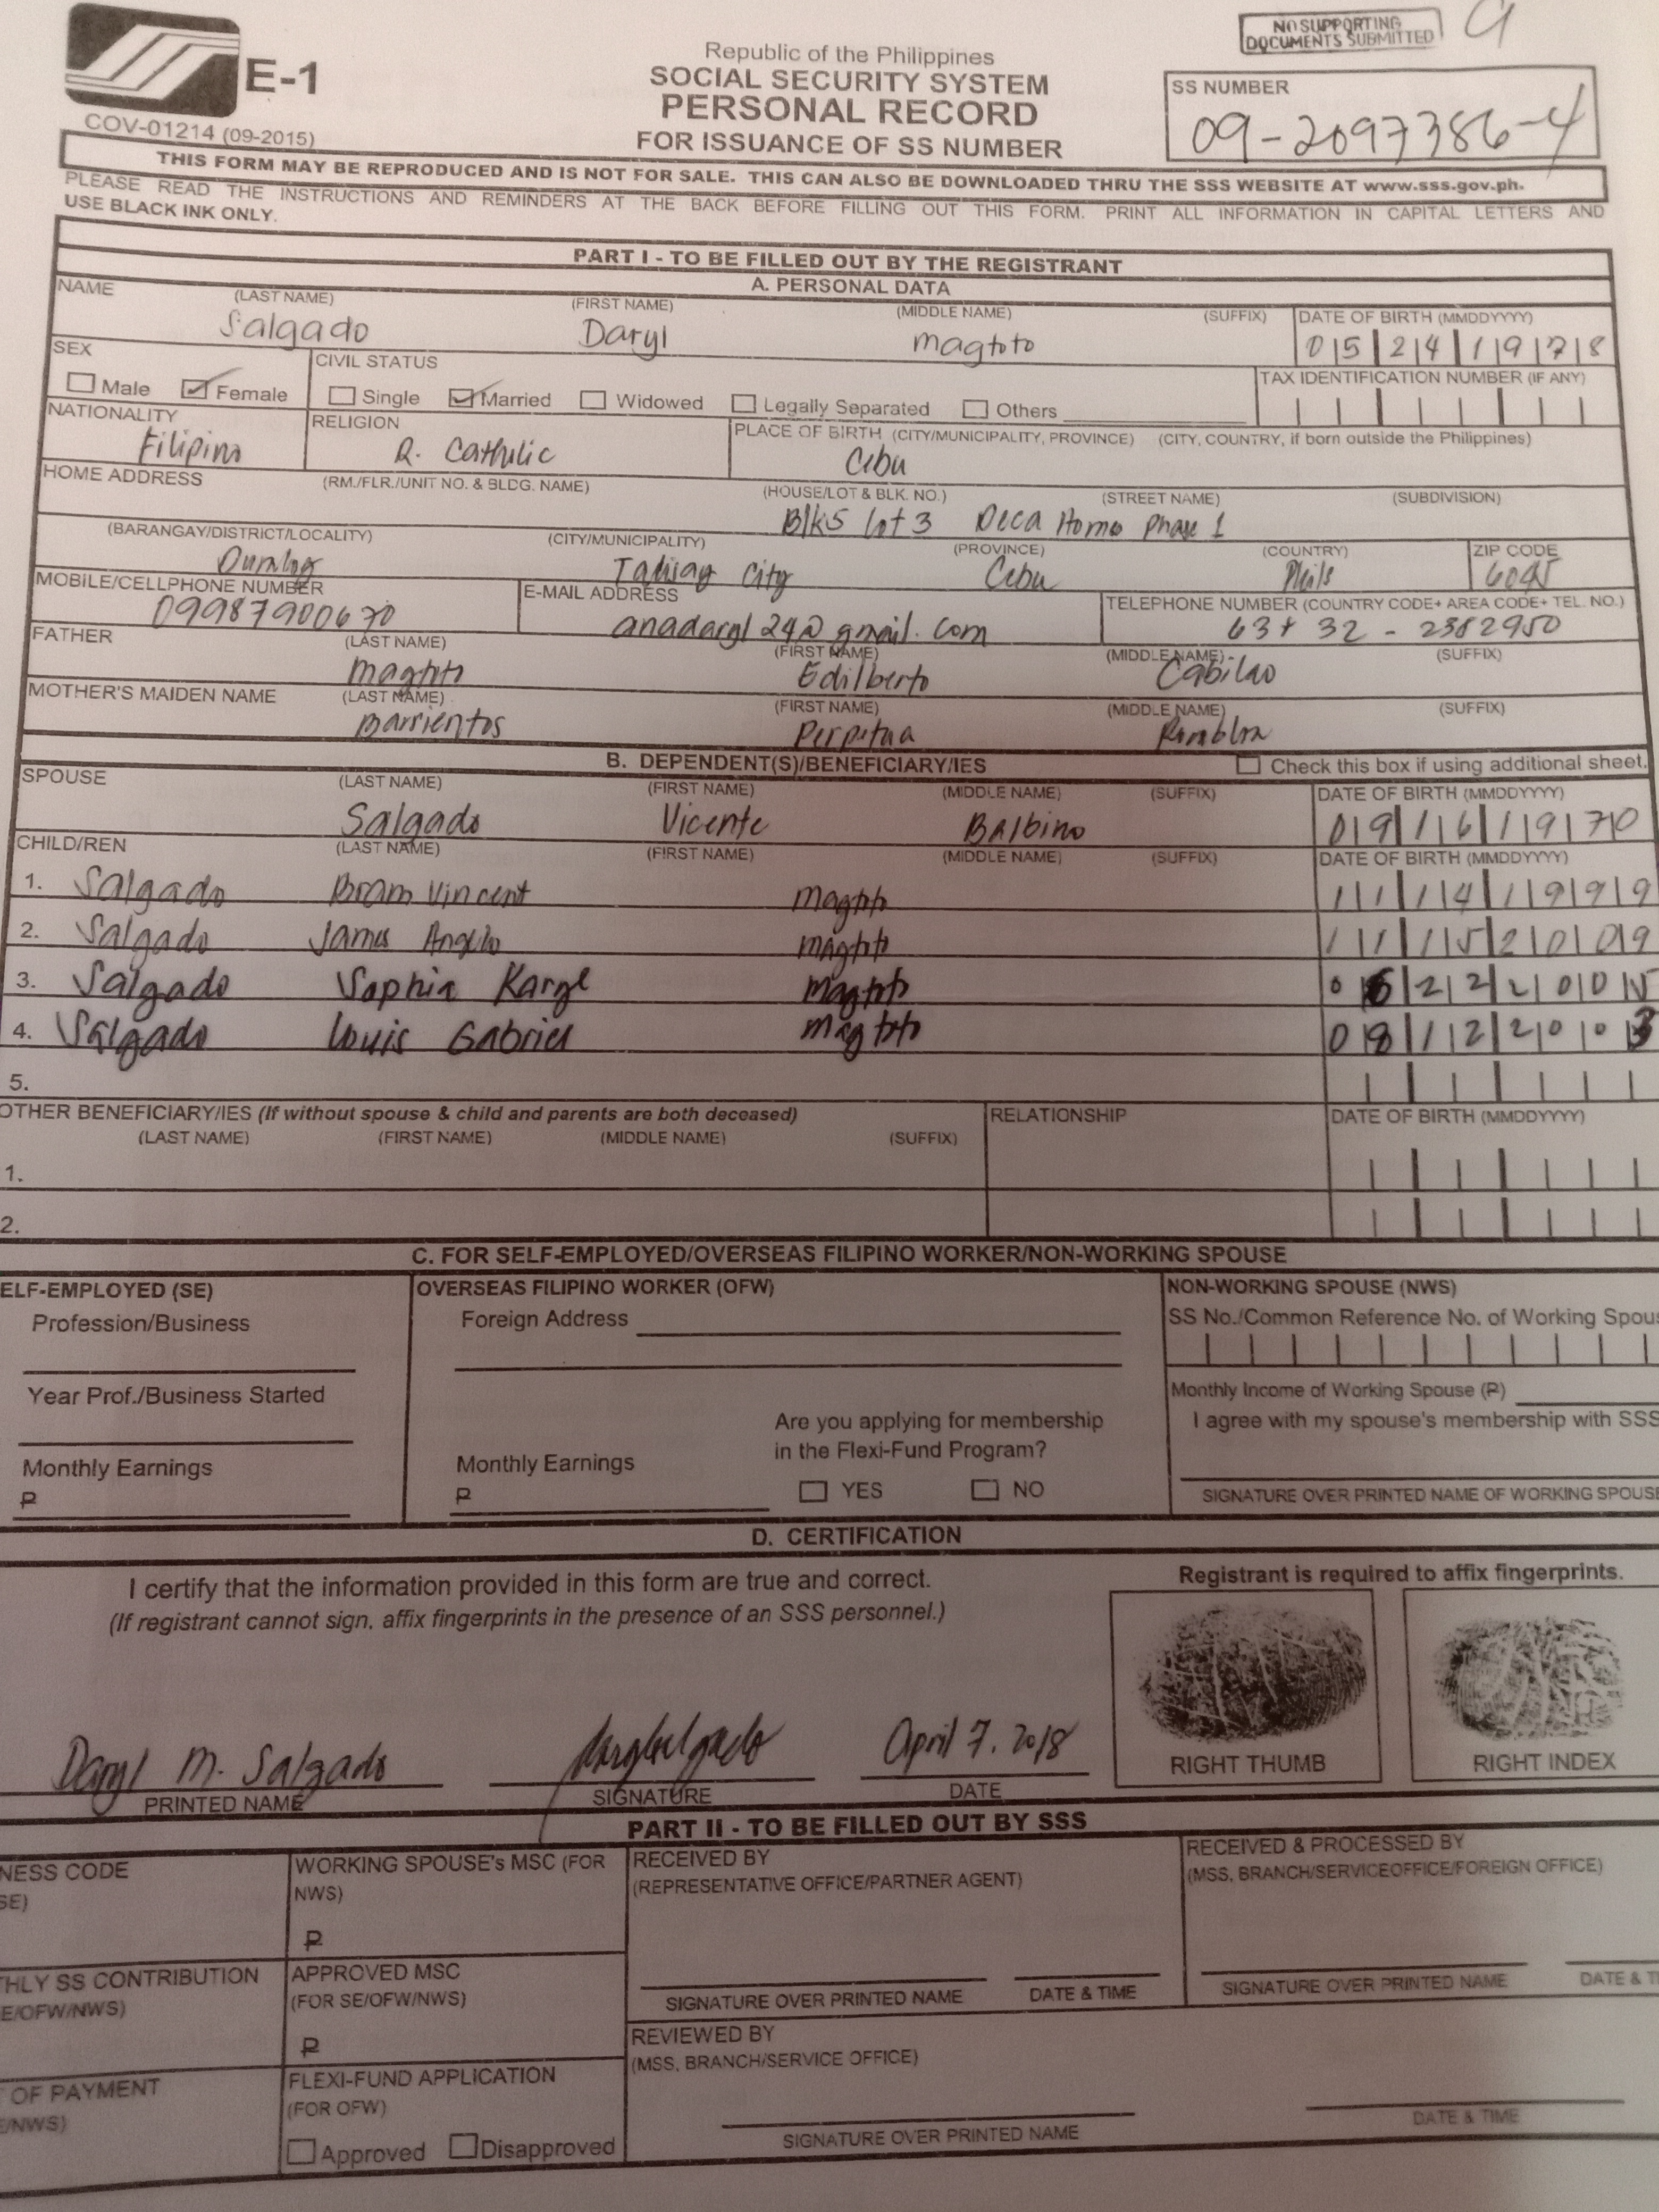 NO SUPPORTING
DOCUMENTS SUBMITTED
E-1
COV-01214 (09-2015)
Republic of the Philippines
SOCIAL SECURITY SYSTEM
PERSONAL RECORD
FOR ISSUANCE OF SS NUMBER
SS NUMBER
09-2097386-4
THIS FORM MAY BE REPRODUCED AND IS NOT FOR SALE. THIS CAN ALSO BE DOWNLOADED THRU THE SSS WEBSITE AT www.sss.gov.ph.
PLEASE READ THE INSTRUCTIONS AND REMINDERS AT THE BACK BEFORE FILLING OUT THIS FORM. PRINT ALL INFORMATION IN CAPITAL LETTERS AND
USE BLACK INK ONLY.
PART I - TO BE FILLED OUT BY THE REGISTRANT
A. PERSONAL DATA
NAME (LAST NAME) (FIRST NAME) (MIDDLE NAME) (SUFFIX) DATE OF BIRTH (MMDDYYYY)
Salgado Daryl Magtoto 05241978
SEX CIVIL STATUS TAX IDENTIFICATION NUMBER (IF ANY)
Male Female Single Married Widowed Legally Separated Others
NATIONALITY RELIGION PLACE OF BIRTH (CITY/MUNICIPALITY, PROVINCE) (CITY, COUNTRY, if born outside the Philippines)
Filipino R. Catholic Cebu
HOME ADDRESS (RM./FLR./UNIT NO. & BLDG. NAME) (HOUSE/LOT & BLK. NO.) (STREET NAME) (SUBDIVISION)
Blk5 lot 3 Deca Homo Phase 1
(BARANGAY/DISTRICT/LOCALITY) (CITY/MUNICIPALITY) (PROVINCE) (COUNTRY) ZIP CODE
City Cebu Phils 6045
MOBILE/CELLPHONE NUMBER E-MAIL ADDRESS TELEPHONE NUMBER (COUNTRY CODE+ AREA CODE+ TEL. NO.)
09987900670 anadaryl24@gmail.com 63+ 32 - 2382950
FATHER (LAST NAME) (FIRST NAME) (MIDDLE NAME) (SUFFIX)
Magtoto Edilberto Cabilao
MOTHER'S MAIDEN NAME (LAST NAME) (FIRST NAME) (MIDDLE NAME) (SUFFIX)
Barrientos Perpetua
B. DEPENDENT(S)/BENEFICIARY/IES Check this box if using additional sheet.
SPOUSE (LAST NAME) (FIRST NAME) (MIDDLE NAME) (SUFFIX) DATE OF BIRTH (MMDDYYYY)
Salgado Vicente Balbino 09161970
CHILD/REN (LAST NAME) (FIRST NAME) (MIDDLE NAME) (SUFFIX) DATE OF BIRTH (MMDDYYYY)
1. Salgado Bram Vincent Magtoto 11141999
2. Salgado James Angelo Magtoto 11152009
3. Salgado Sophia Karyl Magtoto 06222005
4. Salgado Louis Gabriel Magtoto 08122003
5.
OTHER BENEFICIARY/IES (If without spouse & child and parents are both deceased) RELATIONSHIP DATE OF BIRTH (MMDDYYYY)
(LAST NAME) (FIRST NAME) (MIDDLE NAME) (SUFFIX)
1.
2.
C. FOR SELF-EMPLOYED/OVERSEAS FILIPINO WORKER/NON-WORKING SPOUSE
ELF-EMPLOYED (SE) OVERSEAS FILIPINO WORKER (OFW) NON-WORKING SPOUSE (NWS)
Profession/Business Foreign Address SS No./Common Reference No. of Working Spou
Year Prof./Business Started Monthly Income of Working Spouse (₱)
Are you applying for membership I agree with my spouse's membership with SSS
in the Flexi-Fund Program?
Monthly Earnings Monthly Earnings
₱ ₱ YES NO SIGNATURE OVER PRINTED NAME OF WORKING SPOUSE
D. CERTIFICATION
I certify that the information provided in this form are true and correct.
(If registrant cannot sign, affix fingerprints in the presence of an SSS personnel.)
Registrant is required to affix fingerprints.
Daryl M. Salgado April 7, 2018
PRINTED NAME SIGNATURE DATE RIGHT THUMB RIGHT INDEX
PART II - TO BE FILLED OUT BY SSS
NESS CODE
SE)
WORKING SPOUSE's MSC (FOR
NWS)
₱
RECEIVED BY
(REPRESENTATIVE OFFICE/PARTNER AGENT)
RECEIVED & PROCESSED BY
(MSS, BRANCH/SERVICEOFFICE/FOREIGN OFFICE)
THLY SS CONTRIBUTION
E/OFW/NWS)
APPROVED MSC
(FOR SE/OFW/NWS)
₱
SIGNATURE OVER PRINTED NAME DATE & TIME SIGNATURE OVER PRINTED NAME DATE & TI
REVIEWED BY
(MSS, BRANCH/SERVICE OFFICE)
OF PAYMENT
E/NWS)
FLEXI-FUND APPLICATION
(FOR OFW)
Approved Disapproved
SIGNATURE OVER PRINTED NAME DATE & TIME